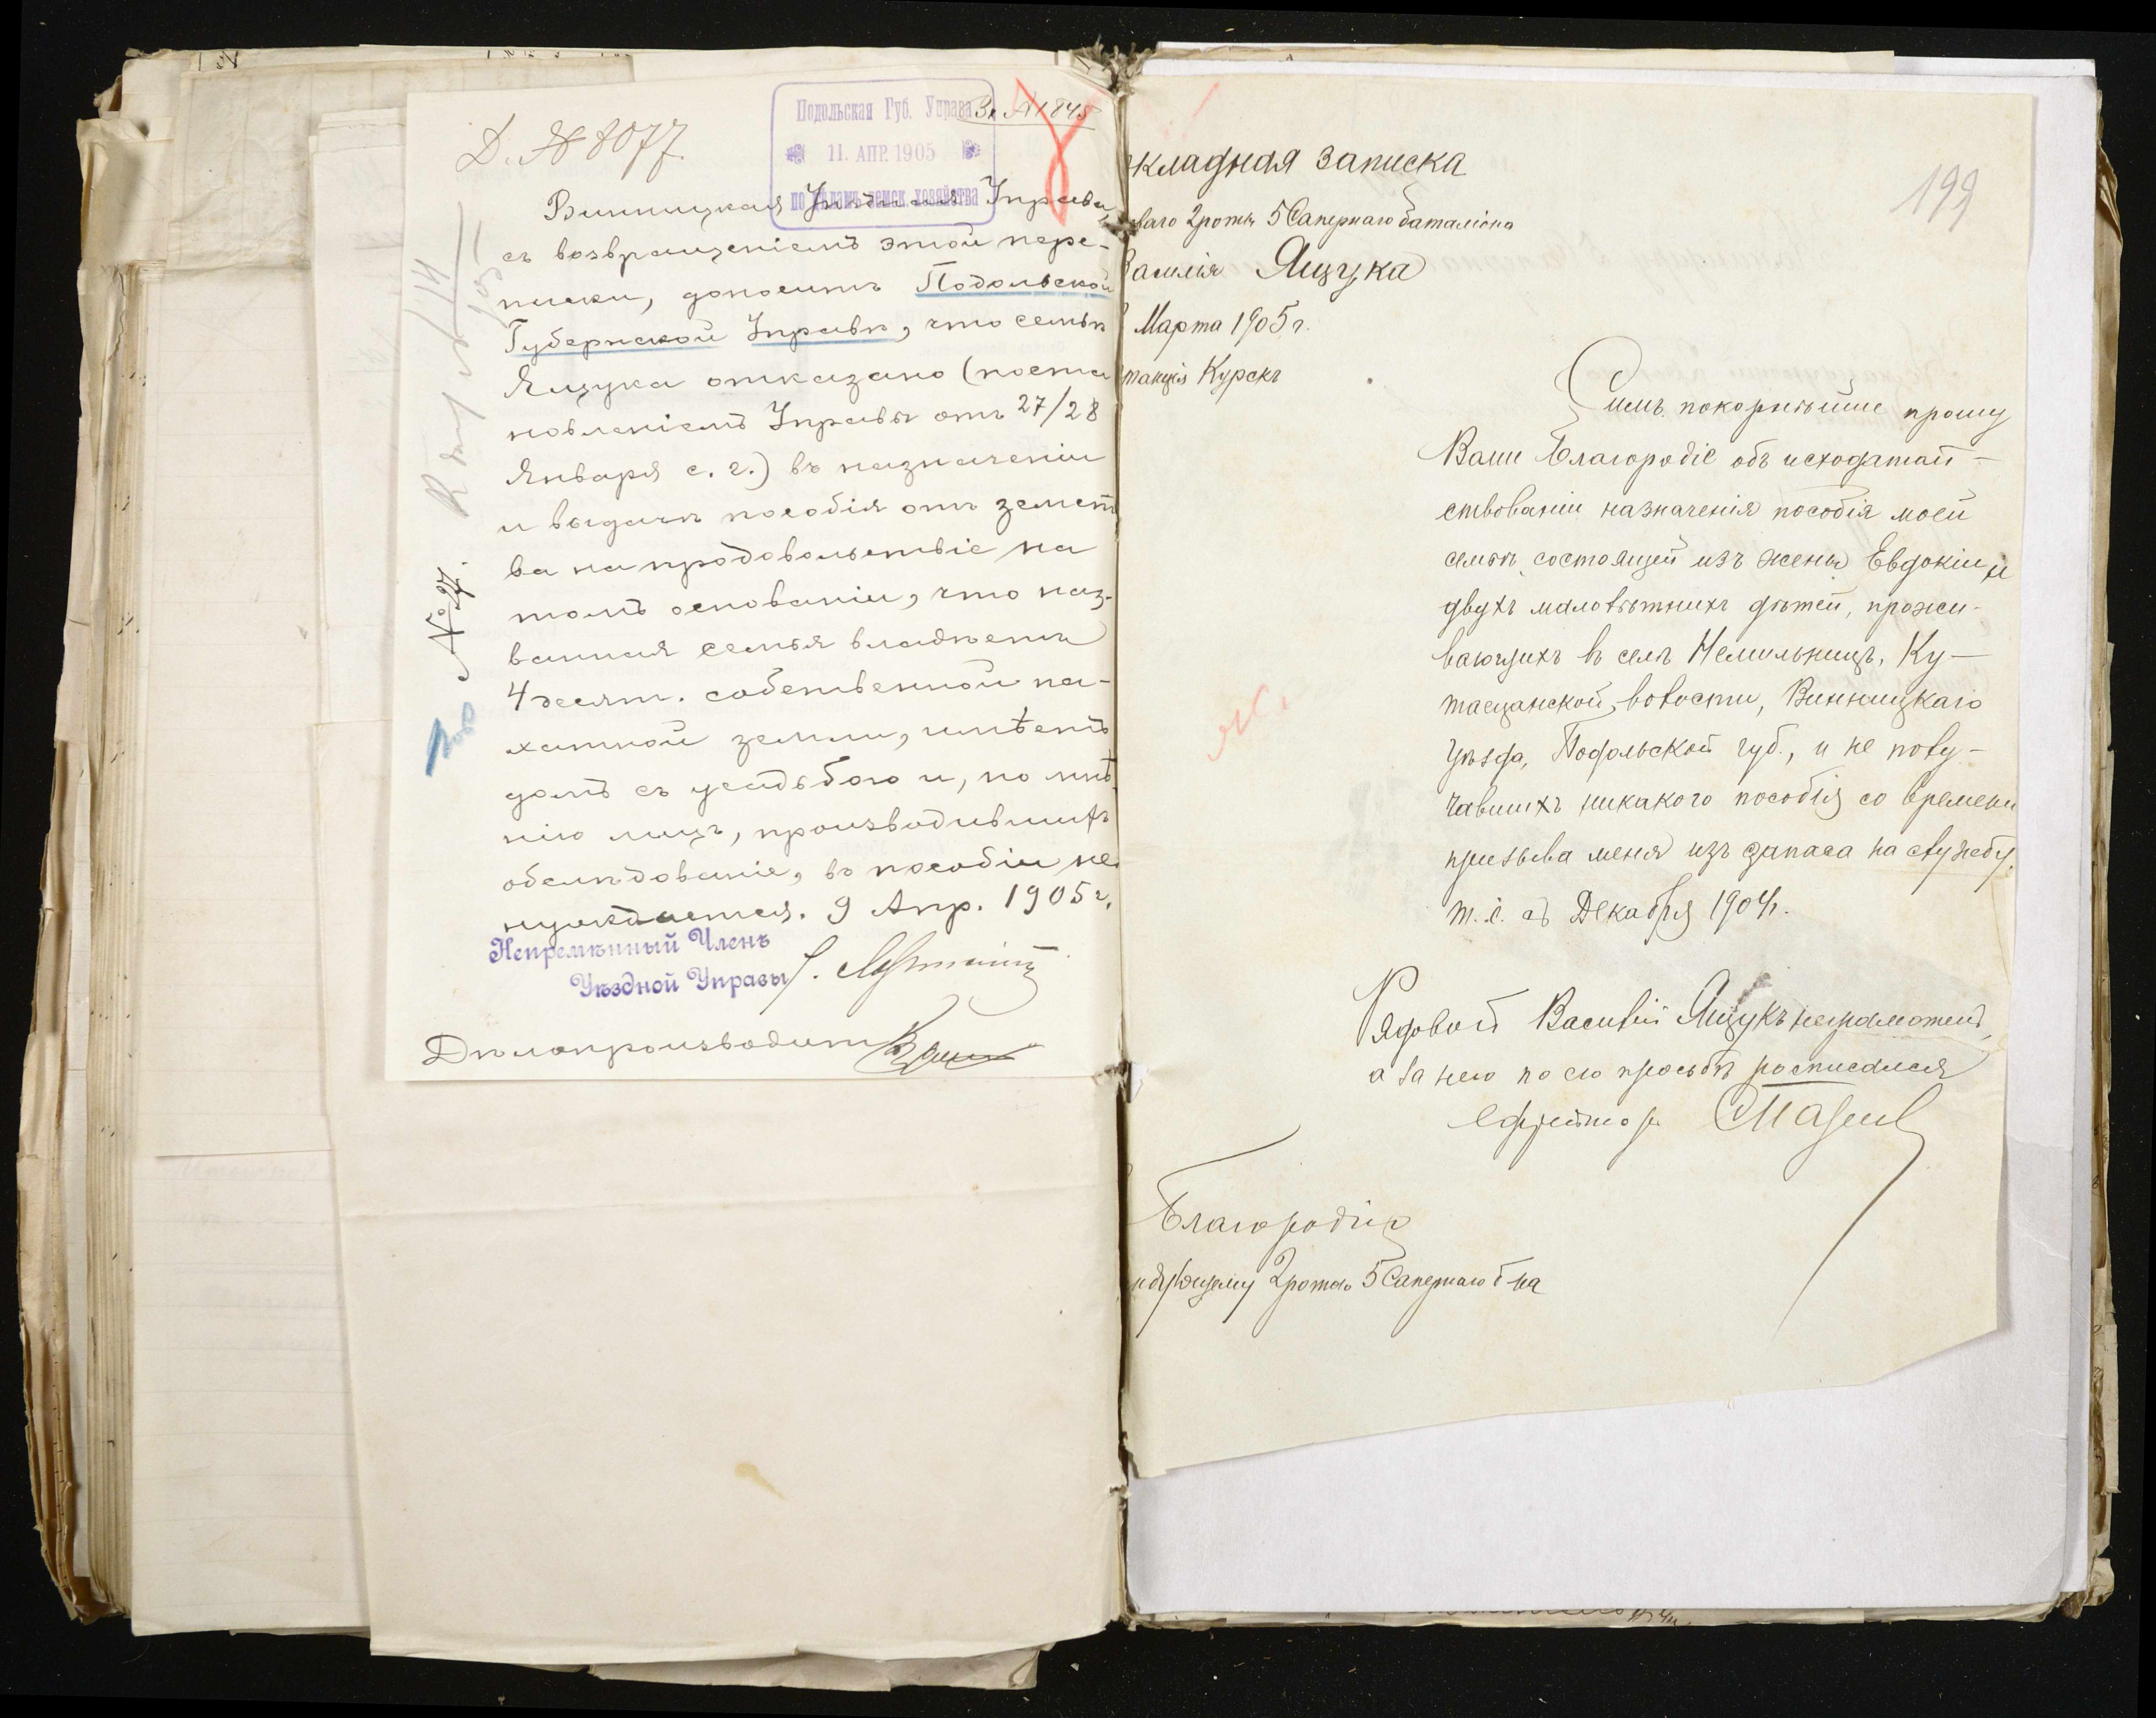 Д. № 8077
Вх. № 1845
Подольская Губ. Управа
11. АПР. 1905
по дѣламъ земск. хозяйства
Винницкая Уѣздная Управа,
съ возвращеніемъ этой пере-
писки, доноситъ Подольской
Губернской Управѣ, что семьѣ
Ящука отказано (поста
новленіемъ Управы отъ 27/28
Января с. г.) въ назначеніи
и выдачѣ пособія отъ земст
ва на продовольствіе на
томъ основаніи, что наз-
ванная семья владѣетъ
4 десят. собственной па-
хатной земли, имѣетъ
домъ съ усадьбою и, по мнѣ
нію лицъ, производившихъ
обслѣдованіе, въ пособіи не
нуждается. 9 Апр. 1905 г.
Непремѣнный Членъ
Уѣздной Управы
Дѣлопроизводит
№ 27.
199
кладная записка
ваго 2 роты 5 Сапернаго баталіона
Василія Ящука
Марта 1905 г.
танція Курскъ
Симъ покорнѣйше прошу
Ваше Благородіе объ исходатай-
ствованіи назначенія пособія моей
семьѣ, состоящей изъ жены Евдокіи и
двухъ малолѣтнихъ дѣтей, прожи-
вающихъ въ селѣ Немильницѣ, Ку-
тасщанской, волости, Винницкаго
уѣзда, Подольской губ., и не полу-
чавшихъ никакого пособія со времени
призыва меня изъ запаса на службу.
т. е. съ Декабря 1904 г.
Рядовой Василій Ящукъ неграмотенъ,
а за него по его просьбѣ росписался
ефрейторъ
Благородію
ндующему 2 ротою 5 Сапернаго б-на